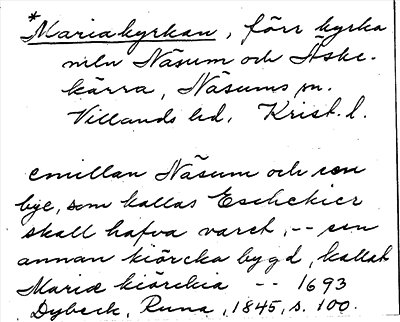 *Mariakyrkan, förr kyrka
mln Näsum och Äske-
kärra, Näsums sn.
Villands hd. Krist. l.
emillan Näsum och een
bye, som kallas Escheckier
skall hafva varet, -- een
annan kiörcka bygd, kallat
Mariæ kiörckia -- 1693
Dybeck, Runa, 1845, s. 100.